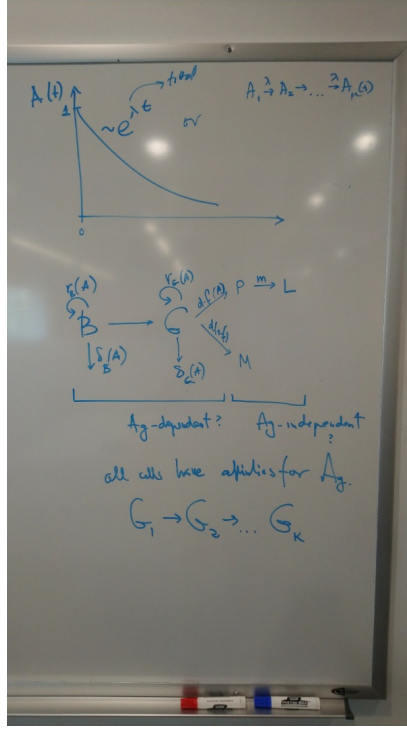 A(t)
1
~e^λt
or
A₁ →λ A₂ → ... →λ Aₙ(t)
0
r_B(A)
B → G
δ_B(A)
r_G(A)
δ_G(A)
P →m L
M
Ag-dependent?
Ag-independent?
all cells have affinities for Ag.
G₁ → G₂ → ... G_K